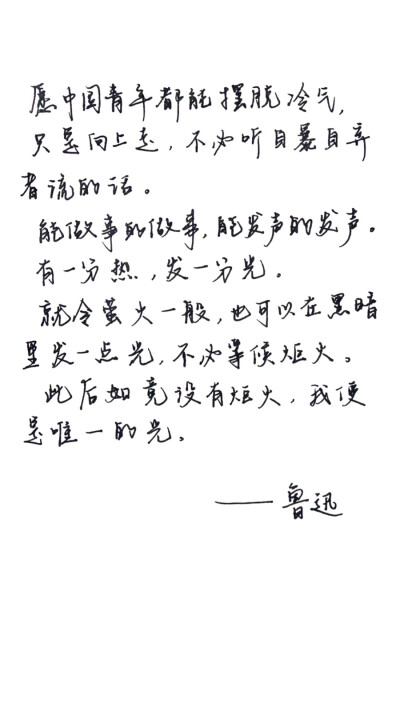 愿中国青年都能摆脱冷气，
只是向上走，不必听自暴自弃
者流的话。
能做事的做事，能发声的发声。
有一分热，发一分光。
就令萤火一般，也可以在黑暗
里发一点光，不必等候炬火。
此后如竟没有炬火，我便
是唯一的光。
——鲁迅